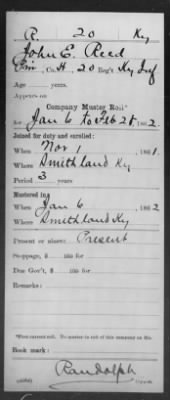 R. 20 Ky
John E. Reed
Co. H, 20 Reg't Ky Inf
Age years.
Appears on
Company Muster Roll*
for Jan 6 to Feb 28, 1862.
Joined for duty and enrolled:
When Nov 1, 1861.
Where Smithland Ky
Period 3 years
Mustered in:
When Jan 6, 1862
Where Smithland Ky
Present or absent Present
Stoppage, $ 100 for
Due Gov't, $ 100 for
Remarks:
Book mark:
Randolph
Copyist.